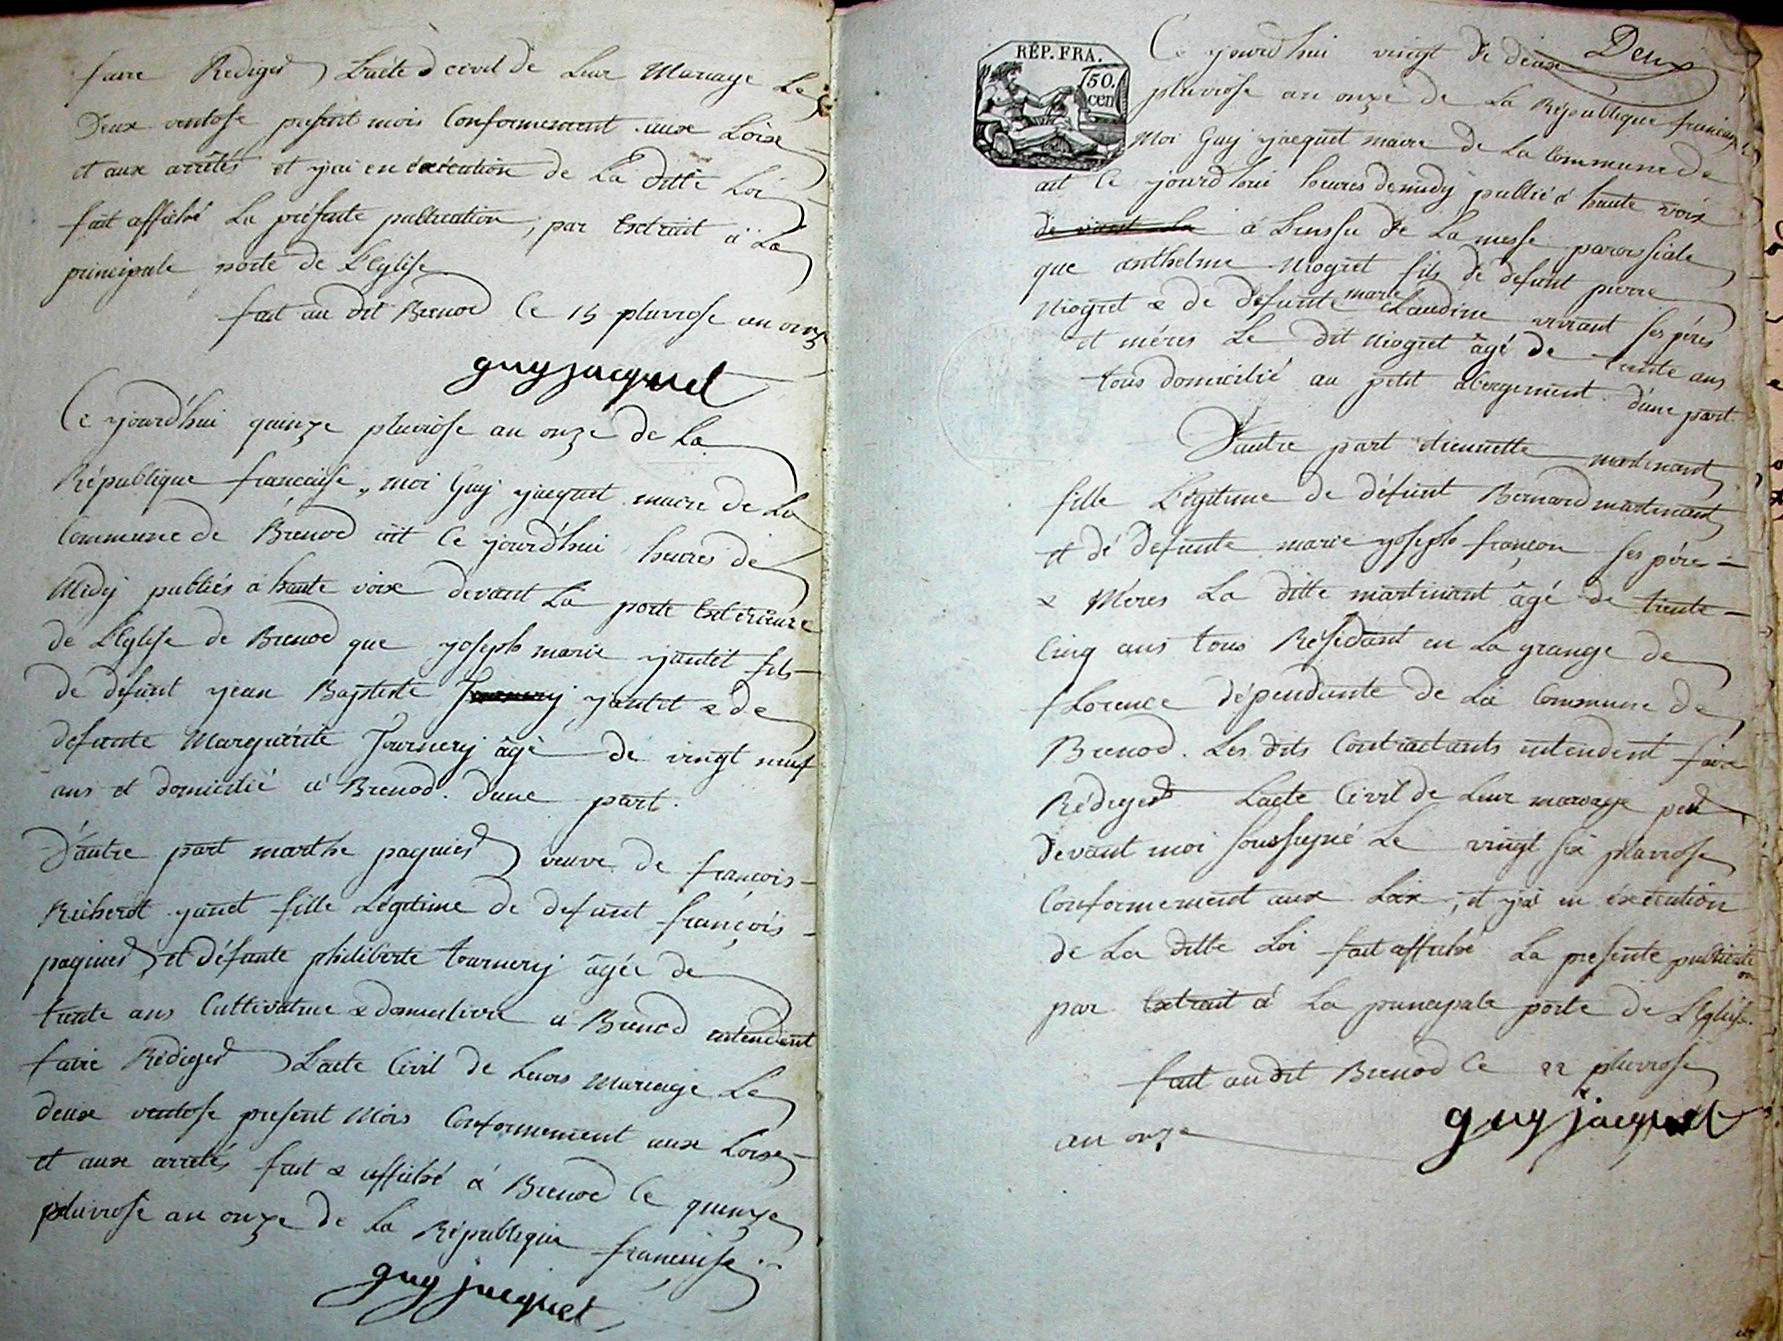 faire Rediger L'acte civil de Leur Mariage Le
Deux ventose present mois Conformement aux Loix
et aux arrêtés et j'ai en exécution de La ditte Loi
fait affiché La présente publication, par Extrait a La
principale porte de L'Eglise
fait au dit Brenod Ce 15 pluviose an onze
guy jacquet
Ce yourd'hui quinze pluviose an onze de La
République francaise, moi Guy yacquet maire de La
Commune de Brenod ait Ce yourd'hui heures de
Midy publiés a haute voix devant La porte Extérieure
de L'Eglise de Brenod que yoseph marie yantet fils
de défunt yean Baptiste yantet & de
defunte Marguérite Tournery âgé de vingt neuf
ans et domicilié a Brenod. dune part.
D'autre part marthe paquier veuve de francois
Richerot yanet fille Légitime de defunt françois
paquier et défunte philiberte tournery âgée de
trente ans Cultivatrice & domicilivée a Brenod entendent
faire Rédiger L'acte Civil de Leurs Mariage Le
deux ventose present Mois Conformement aux Loix
et aux arretés fait & affiché a Brenod Ce quinze
pluviose an onze de La République francaise.
guy jacquet
Deux
RÉP. FRA.
50.
cen
Ce yourd'hui vingt de deux
pluviose an onze de La République francaise
Moi Guy yacquet maire de La Commune de
ait Ce yourd'hui heures de midy publié a haute voix
de vant La a Lissu de La messe paroissiale
que anthelme Niogret fils de defunt pierre
Niogret & de défunte marie Claudine vivant ses péres
et méres Le dit Niogret âgé de trente ans
tous domicilié au petit abergement d'une part.
D'autre part étiennette martinant
fille Légitime de défunt Bernard martinant
et dé defunte marie yoseph françon ses pére
& Méres La ditte martinant âgé de trente
Cinq ans tous Résidant en La grange de
fLorence dépendante de La Commune de
Brenod. Les dits Contractants entendent faire
Rédiger L'acte Civil de Leur mariage par
devant moi soussigné Le vingt six pluviose
Conformement aux Loix, et j'ai en exécution
de La ditte Loi fait affiché La presente publication
par Extrait a La principale porte de L'Eglise.
fait audit Brenod Ce 22 pluviose
an onze guy jacquet